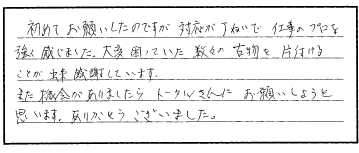 初めてお願いしたのですが 対応が丁ねいで 仕事のプロを
強く感じました。大変困っていた 数々の古物を 片付ける
ことが出来 感謝しています。
また機会がありましたら トータルさんに お願いしようと
思います。ありがとうございました。